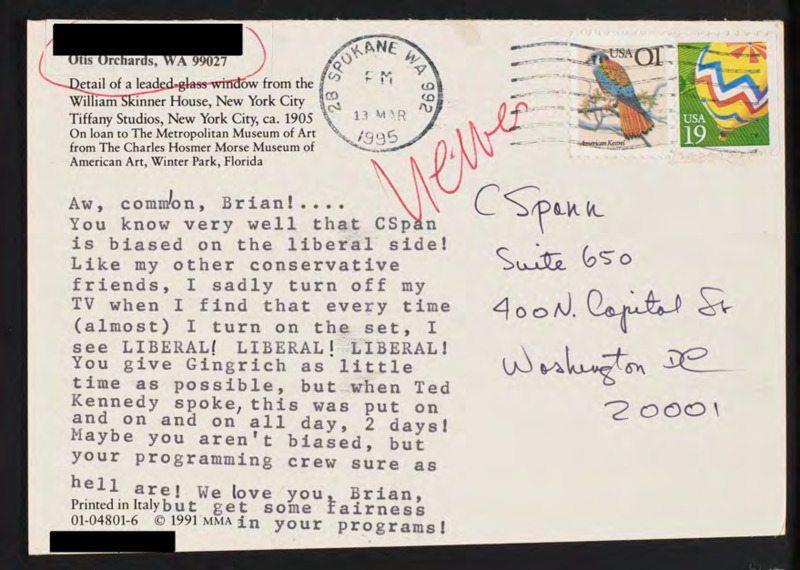 Otis Orchards, WA 99027
Detail of a leaded-glass window from the
William Skinner House, New York City
Tiffany Studios, New York City, ca. 1905
On loan to The Metropolitan Museum of Art
from The Charles Hosmer Morse Museum of
American Art, Winter Park, Florida
2B SPOKANE WA 992
PM
13 MAR
1995
USA 01
American Kestrel
USA
19
Viewer
Aw, common, Brian!....
You know very well that CSpan
is biased on the liberal side!
Like my other conservative
friends, I sadly turn off my
TV when I find that every time
(almost) I turn on the set, I
see LIBERAL! LIBERAL! LIBERAL!
You give Gingrich as little
time as possible, but when Ted
Kennedy spoke, this was put on
and on and on all day, 2 days!
Maybe you aren't biased, but
your programming crew sure as
hell are! We love you, Brian,
but get some fairness
in your programs!
Printed in Italy
01-04801-6 © 1991 MMA
C Spann
Suite 650
400 N. Capitol St
Washington DC
20001